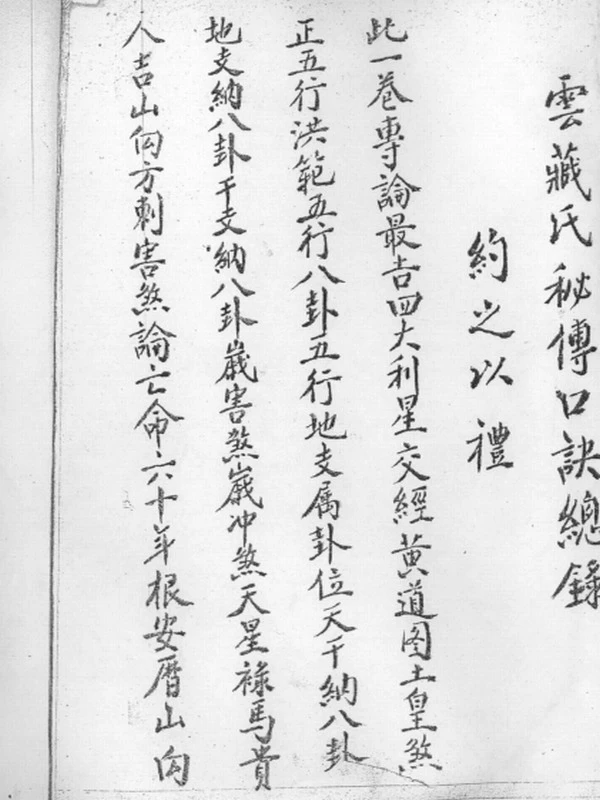 雲藏氏秘傳口訣總錄
約之以禮
此一卷專論最吉四大利星交經黄道图土皇煞
正五行洪範五行八卦五行地支属卦位天干納八卦
地支納八卦干支納八卦嵗害煞嵗冲煞天星祿馬貴
人吉山向方刺害煞論亡命六十年根安厝山向